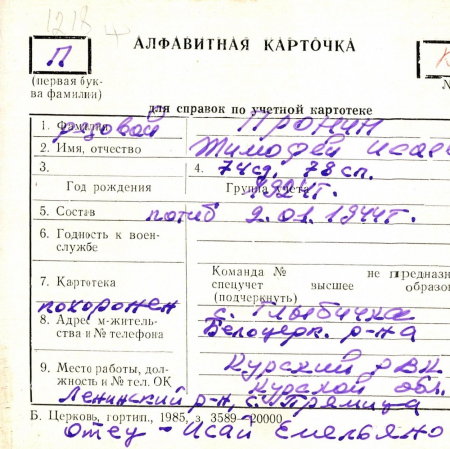 1218
П
АЛФАВИТНАЯ КАРТОЧКА
(первая бук-
ва фамилии)
для справок по учетной картотеке
1. Фамилия рядовой ПРОНИН
2. Имя, отчество Тимофей Исае
3. 4. 74сд. 78 сп.
Год рождения Группа учета 1924г.
5. Состав погиб 2.01.1944г.
6. Годность к воен-
службе
Команда № не предназна
7. Картотека спецучет высшее образо
(подчеркнуть)
похоронен с. Глыбичка
8. Адрес м-житель- Белоцерк. р-на
ства и № телефона
9. Место работы, дол- Курский РВК
жность и № тел. ОК Курской обл.
Ленинский р-н, с. Прямица
Б. Церковь, гортип., 1985, з. 3589—20000
Отец - Исай Емельяно